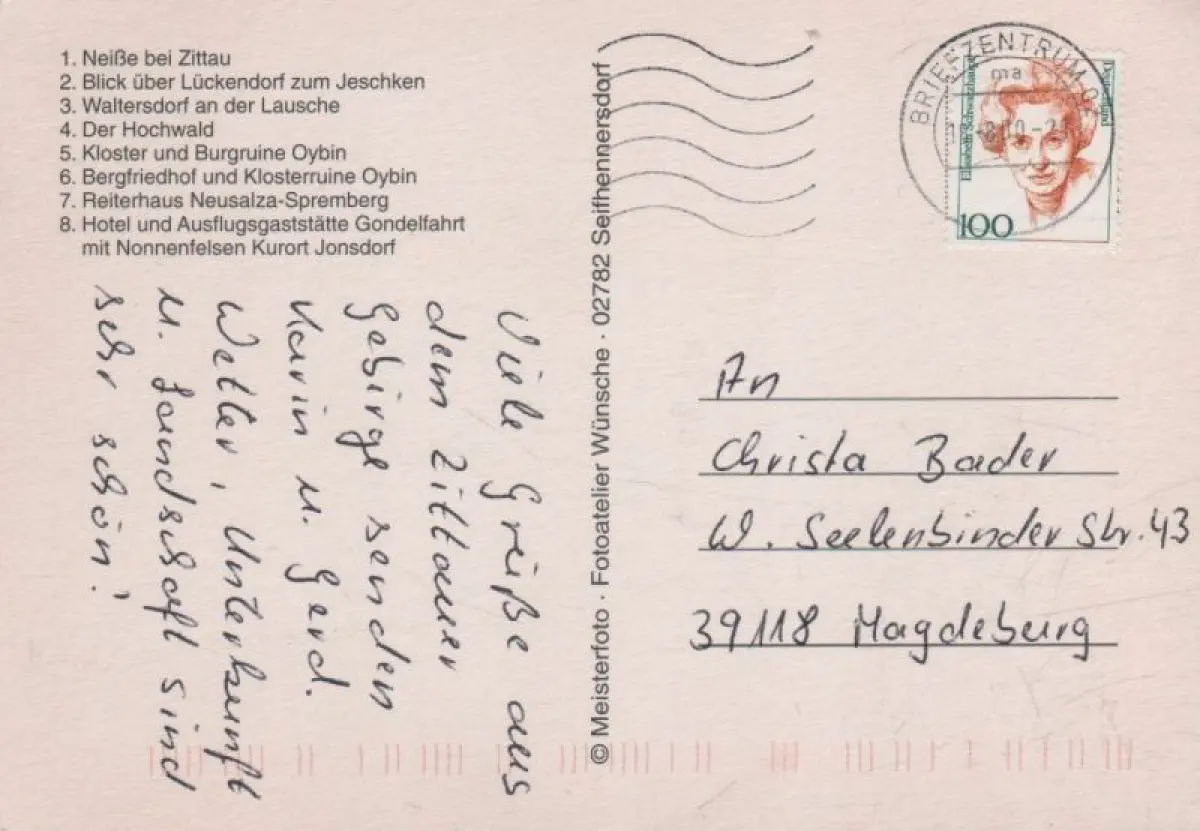 1. Neiße bei Zittau
2. Blick über Lückendorf zum Jeschken
3. Waltersdorf an der Lausche
4. Der Hochwald
5. Kloster und Burgruine Oybin
6. Bergfriedhof und Klosterruine Oybin
7. Reiterhaus Neusalza-Spremberg
8. Hotel und Ausflugsgaststätte Gondelfahrt
mit Nonnenfelsen Kurort Jonsdorf
Viele Grüße aus
dem Zittauer
Gebirge senden
Karin u. Gerd.
Wetter, Unterkunft
u. Landschaft sind
sehr schön!
© Meisterfoto · Fotoatelier Wünsche · 02782 Seifhennersdorf
BRIEFZENTRUM
ma
Elisabeth Schwarzhaupt
Deutschland
100
An
Christa Bader
W. Seelenbinder Str. 43
39118 Magdeburg